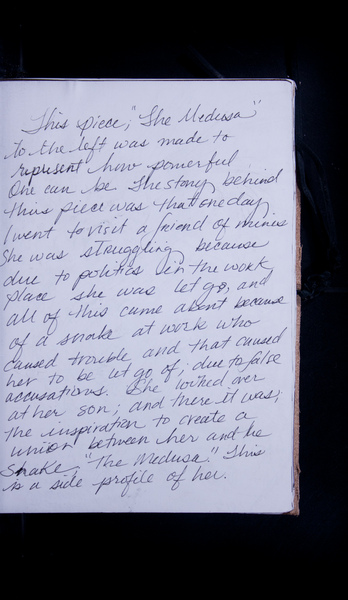 This piece, "The Medusa"
to the left was made to
represent how powerful
One can be. The story behind
this piece was that one day
I went to visit a friend of mines
She was struggling because
due to politics in the work
place she was let go, and
all of this came about because
of a snake at work who
caused trouble and that caused
her to be let go of; due to false
accusations. She looked over
at her son; and there it was;
the inspiration to create a
union between her and he
Snake. "The Medusa." This
is a side profile of her.